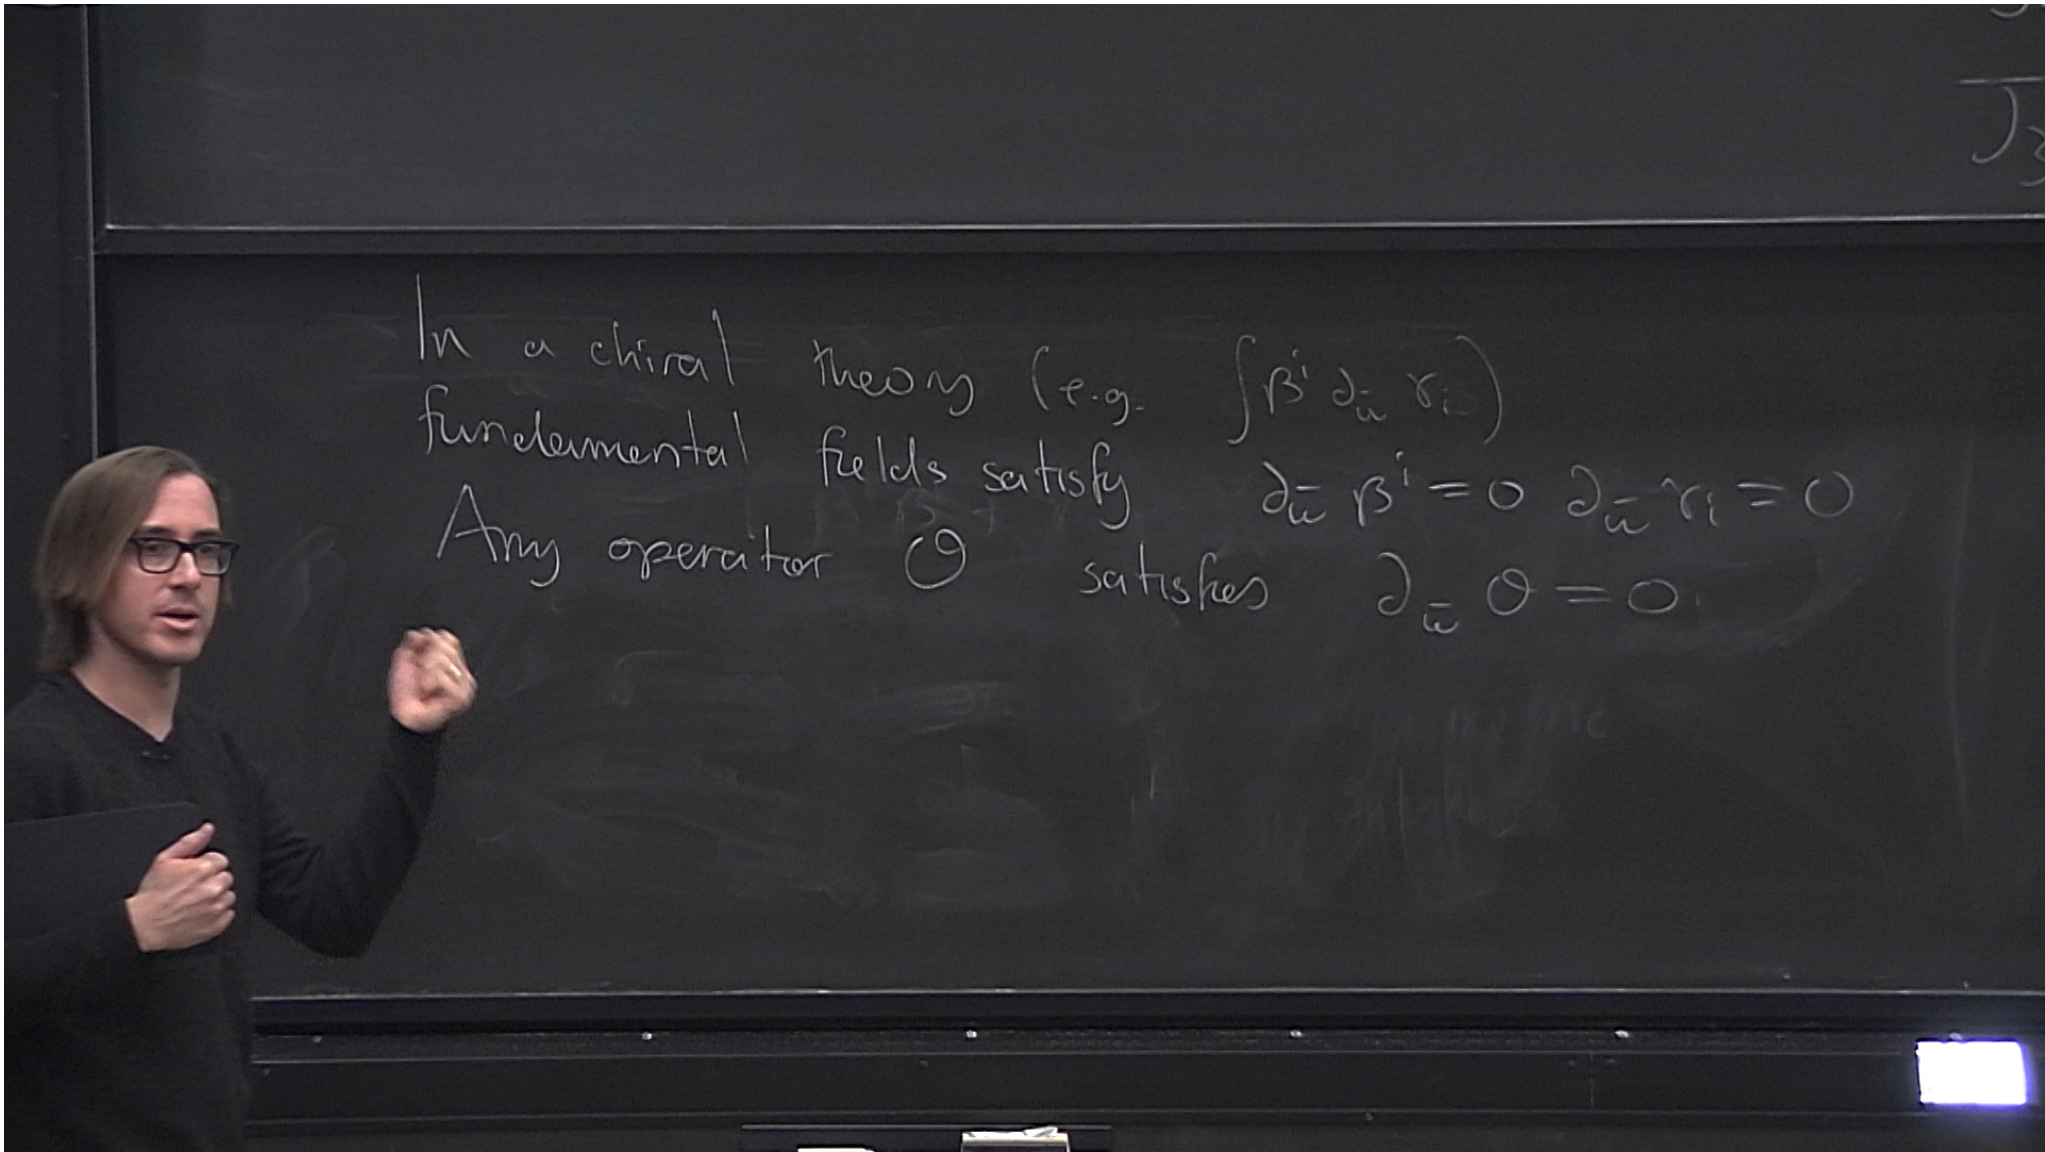 J3
In a chiral theory (e.g. ∫βⁱ ∂_w̄ γᵢ)
fundamental fields satisfy ∂_w̄ βⁱ = 0 ∂_w̄ γᵢ = 0
Any operator O satisfies ∂_w̄ O = 0.